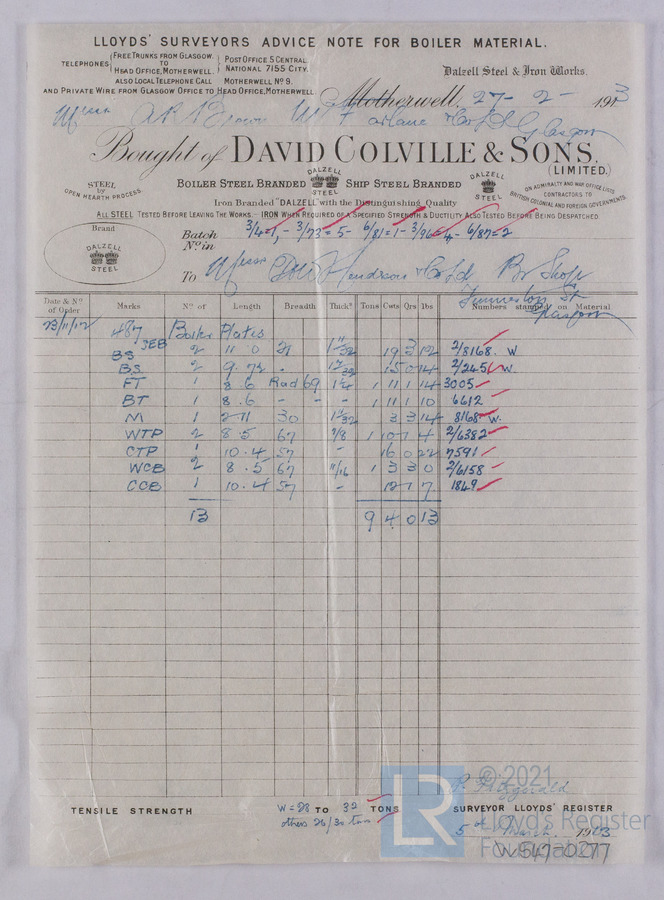 LLOYDS' SURVEYORS ADVICE NOTE FOR BOILER MATERIAL.
TELEPHONES { FREE TRUNKS FROM GLASGOW TO HEAD OFFICE, MOTHERWELL. } POST OFFICE 5 CENTRAL. NATIONAL 7155 CITY.
ALSO LOCAL TELEPHONE CALL MOTHERWELL Nº 9.
AND PRIVATE WIRE FROM GLASGOW OFFICE TO HEAD OFFICE, MOTHERWELL.
Dalzell Steel & Iron Works.
Motherwell, 27 - 2 - 1913
Messrs A & Brown Mc Farlane & Co Ld Glasgow
Bought of DAVID COLVILLE & SONS, (LIMITED.)
STEEL by OPEN HEARTH PROCESS.
BOILER STEEL BRANDED DALZELL STEEL SHIP STEEL BRANDED
DALZELL STEEL
ON ADMIRALTY AND WAR OFFICE LISTS
CONTRACTORS TO
BRITISH COLONIAL AND FOREIGN GOVERNMENTS.
Iron Branded "DALZELL" with the Distinguishing Quality
ALL STEEL TESTED BEFORE LEAVING THE WORKS. - IRON WHEN REQUIRED OF A SPECIFIED STRENGTH & DUCTILITY ALSO TESTED BEFORE BEING DESPATCHED.
Brand
DALZELL STEEL
Batch Nº in 3/4=1, - 3/73=5 - 6/81=1 - 3/96=4 - 6/87=2
To Messrs D & W Henderson & Co Ld Br Shop
St
Glasgow
Date & Nº of Order Marks Nº of Length Breadth Thick? Tons Cwts Qrs lbs Numbers stamped on Material
23/11/12 487 Boiler Plates
JEB
BS 2 11. 0 21 1 11/32 19 3 12 2/8168. W
BS 2 9. 7½ " 15 0 14 2/2456 W.
FT 1 8 6 Rad 69 1¼ 1 11 1 14 3005
BT 1 8. 6 - - - 1 11 1 10 6612
M 1 2 11 30 1 11/32 3 3 14 8168 W.
WTP 2 8. 5 67 7/8 1 10 1 4 2/6382
CTP 1 10. 4 57 16 0 22 7591
WCB 2 8. 5 67 11/16 1 3 3 0 2/6158
CCB 1 10. 4 57 - 12 1 7 1849
13 9 4 0 13
TENSILE STRENGTH W = 28 TO 32 TONS
others 26/30 tons
P. Fitzgerald
SURVEYOR LLOYDS' REGISTER
5 of March 1913
W547-0277
© 2021
LR
Lloyd's Register
Foundation